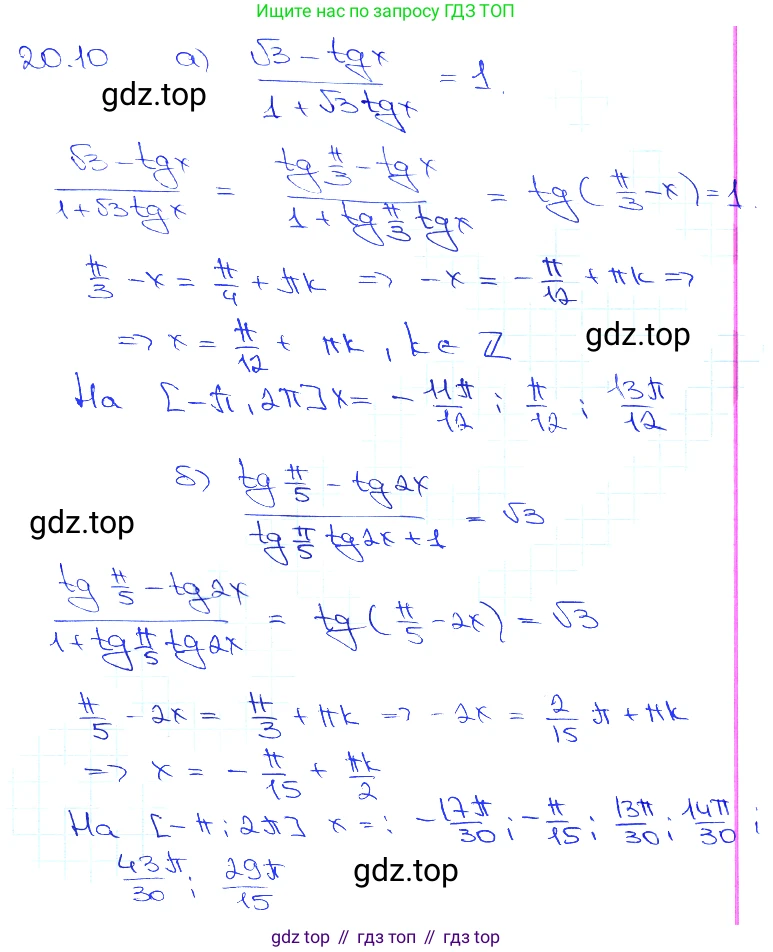 Ищите нас по запросу ГДЗ ТОП
20.10 а) (√3 - tgx)/(1 + √3 tgx) = 1.
gdz.top
(√3 - tgx)/(1 + √3 tgx) = (tg π/3 - tgx)/(1 + tg π/3 tgx) = tg(π/3 - x) = 1.
π/3 - x = π/4 + πk => -x = -π/12 + πk =>
=> x = π/12 + πk, k ∈ Z
gdz.top
На [-π; 2π] x = -11π/12; π/12; 13π/12
б) (tg π/5 - tg2x)/(tg π/5 tg2x + 1) = √3
gdz.top
(tg π/5 - tg2x)/(1 + tg π/5 tg2x) = tg(π/5 - 2x) = √3
π/5 - 2x = π/3 + πk => -2x = 2/15 π + πk
=> x = -π/15 + πk/2
На [-π; 2π] x =: -17π/30; -π/15; 13π/30; 14π/30;
43π/30; 29π/15
gdz.top
gdz.top // гдз топ // гдз.top